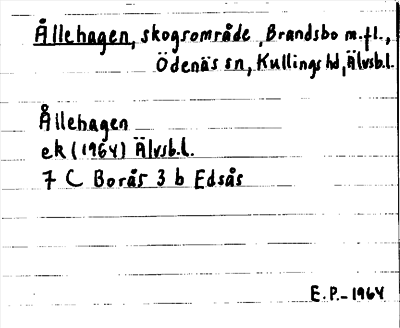 Ållehagen, skogsområde, Brandsbo m.fl.,
Ödenäs sn, Kullings hd, Älvsb.l.
Ållehagen
ek (1964) Älvsb.l.
7 C Borås 3 b Edsås
E.P.-1964